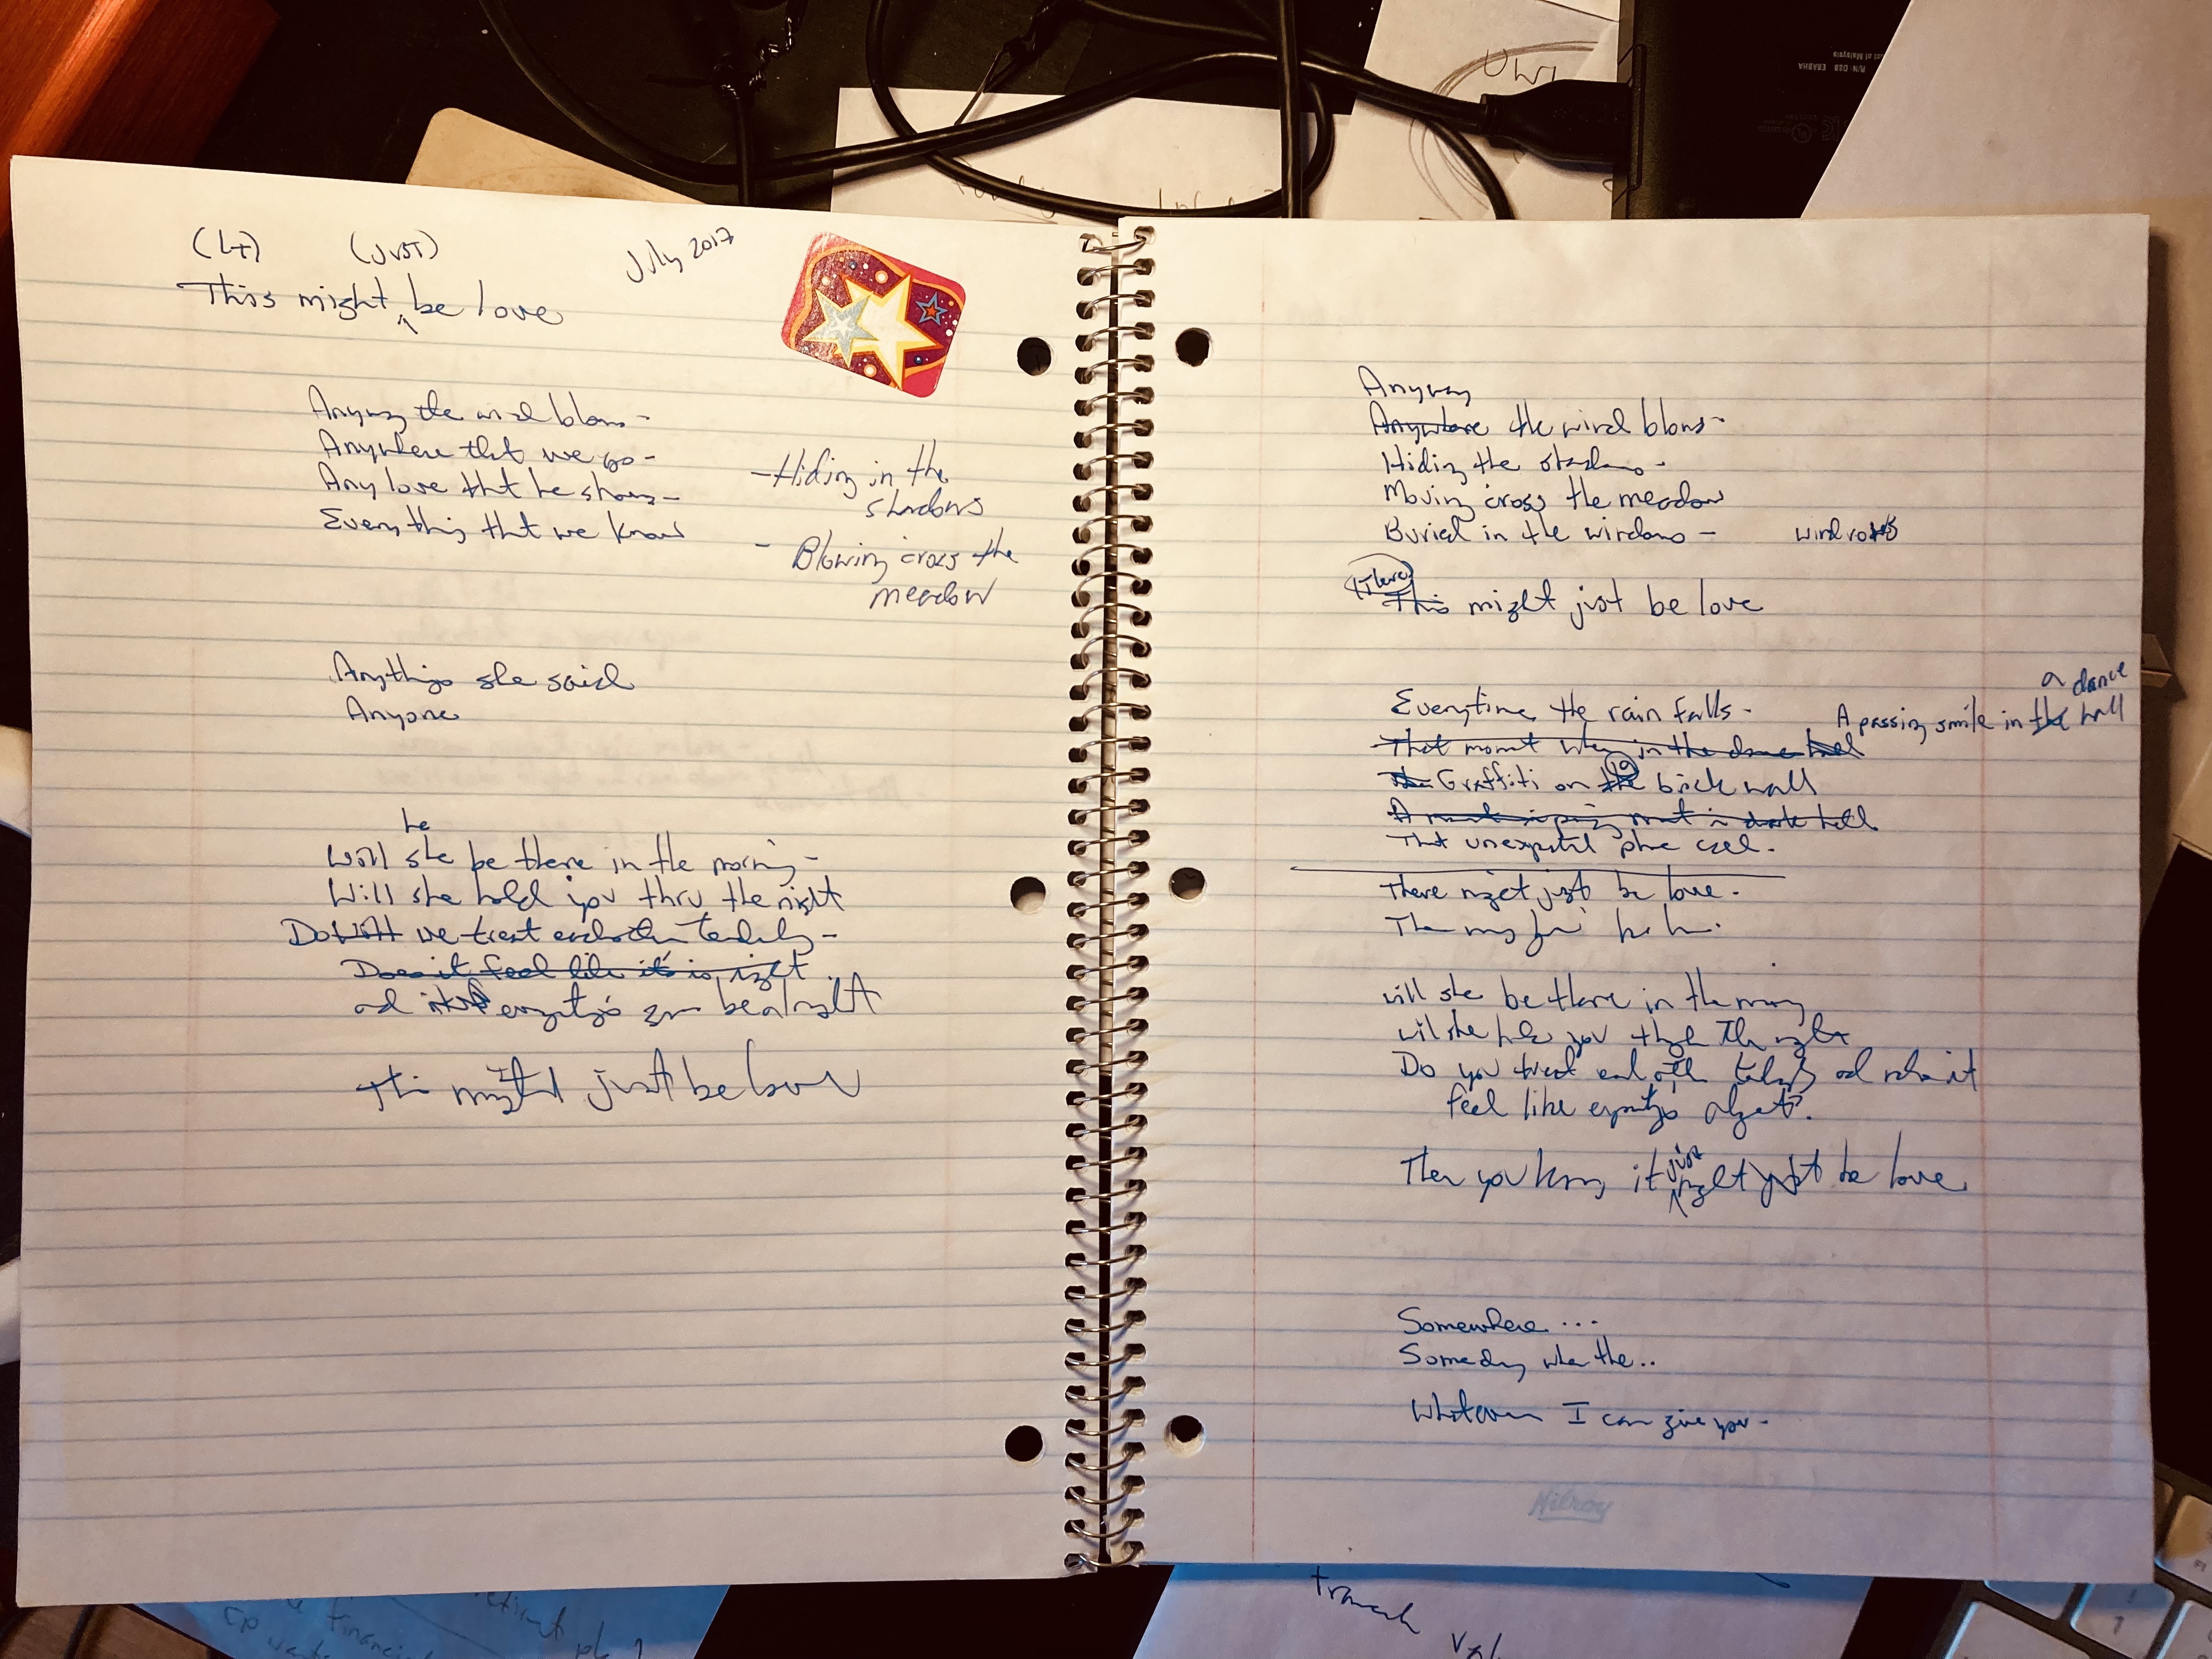 (LT) (JUST) July 2017
This might be love
Anyway the wind blows -
Anywhere that we go -
Any love that he shows -
Everything that we know
- Hiding in the
shadows
- Blowing 'cross the
meadow
Anything she said
Anyone
he
Will she be there in the morning -
Will she hold you thru the night
Do Will we treat each other tenderly -
Does it feel like it's is right
and everything's gonna be alright
This might just be love
Anyway
Anywhere the wind blows -
Hiding the shadows -
Moving 'cross the meadow
Buried in the windows - windrows
There
This might just be love
a dance
Everytime the rain falls - A passing smile in the hall
That moment when in the dance hall
Graffiti on the brick wall
hall
That unexpected phone call.
There might just be love.
will she be there in the morning
will she hold you through the night
Do you treat each other tenderly and does it
feel like everything's alright?
just
Then you know it might just be love
Somewhere ...
Someday when the ..
Whatever I can give you -
Hilroy